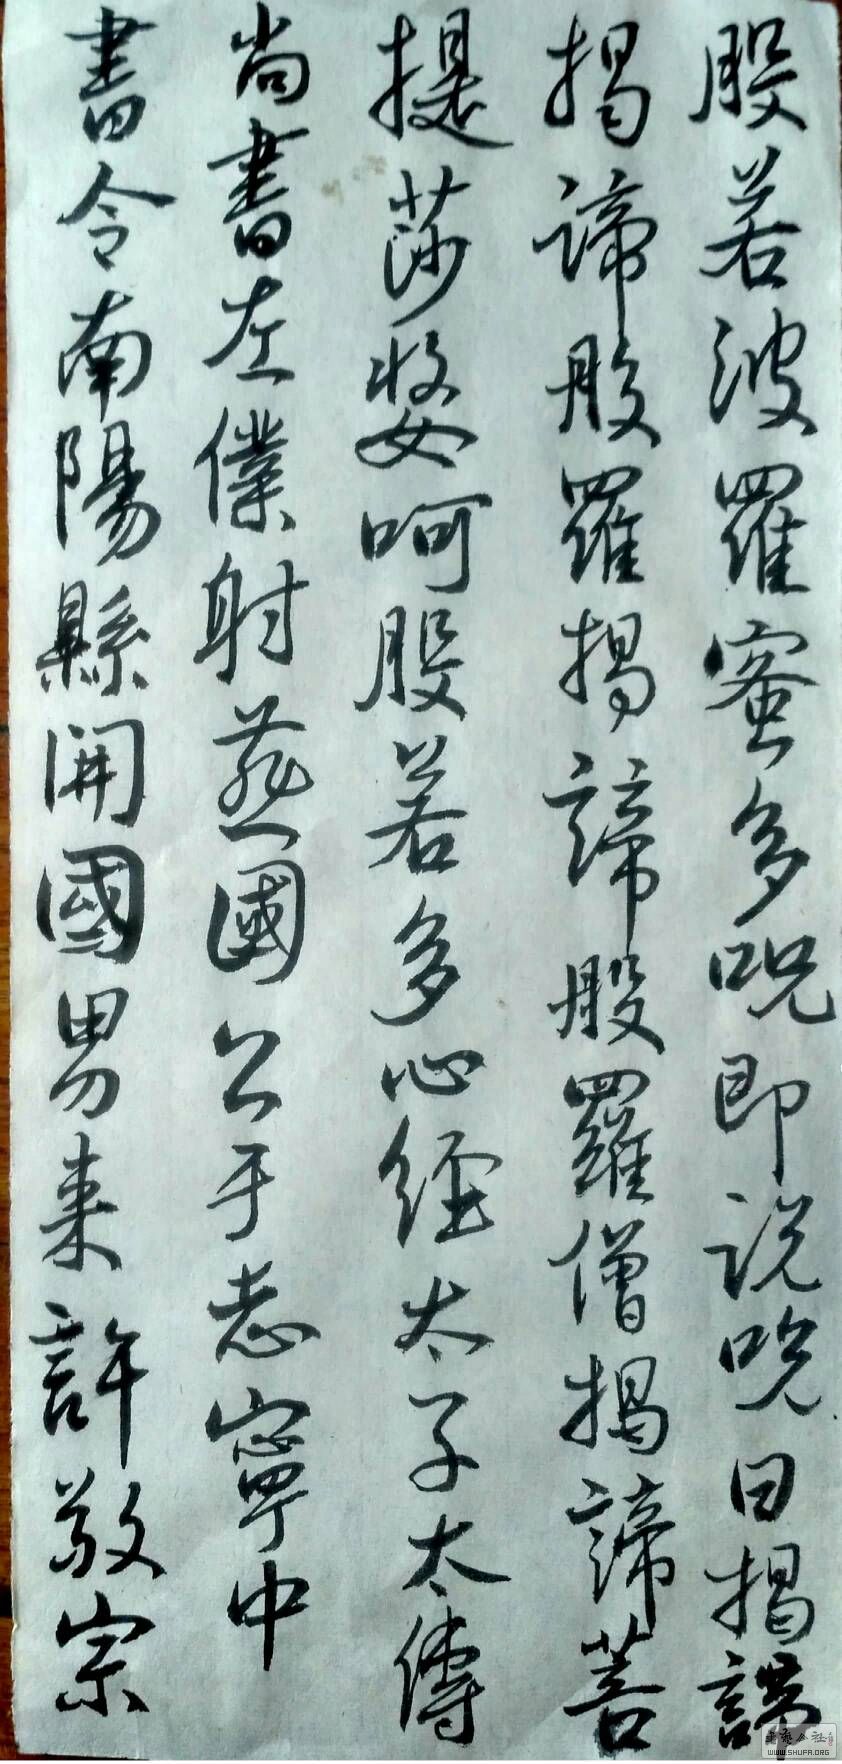 般若波羅蜜多呪即説呪曰揭諦
揭諦般羅揭諦般羅僧揭諦菩
提莎婆呵般若多心經太子太傅
尚書左僕射燕國公于志寧中
書令南陽縣開國男来許敬宗
WWW.SHUFA.ORG